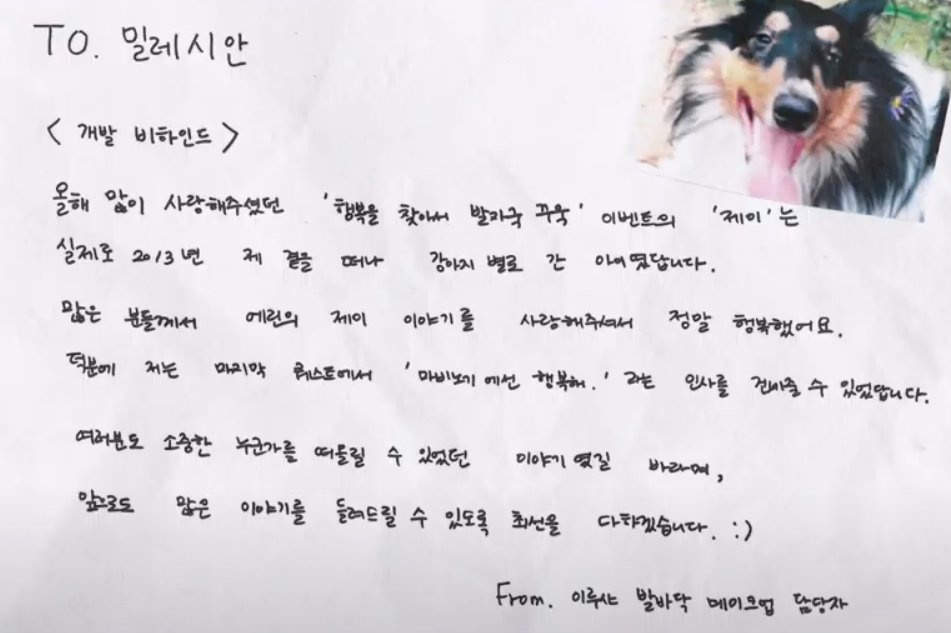 TO. 밀레시안
< 개발 비하인드 >
올해 많이 사랑해주셨던 '행복을 찾아서 발자국 꾸욱' 이벤트의 '제이'는
실제로 2013년 제 곁을 떠나 강아지 별로 간 아이였답니다.
많은 분들께서 에린의 제이 이야기를 사랑해주셔서 정말 행복했어요.
덕분에 저는 마지막 퀘스트에서 '마비노기에선 행복해.' 라는 인사를 건네줄 수 있었답니다.
여러분도 소중한 누군가를 떠올릴 수 있었던 이야기였길 바라며,
앞으로도 많은 이야기를 들려드릴 수 있도록 최선을 다하겠습니다. :)
From. 이루샤 발바닥 메이크업 담당자